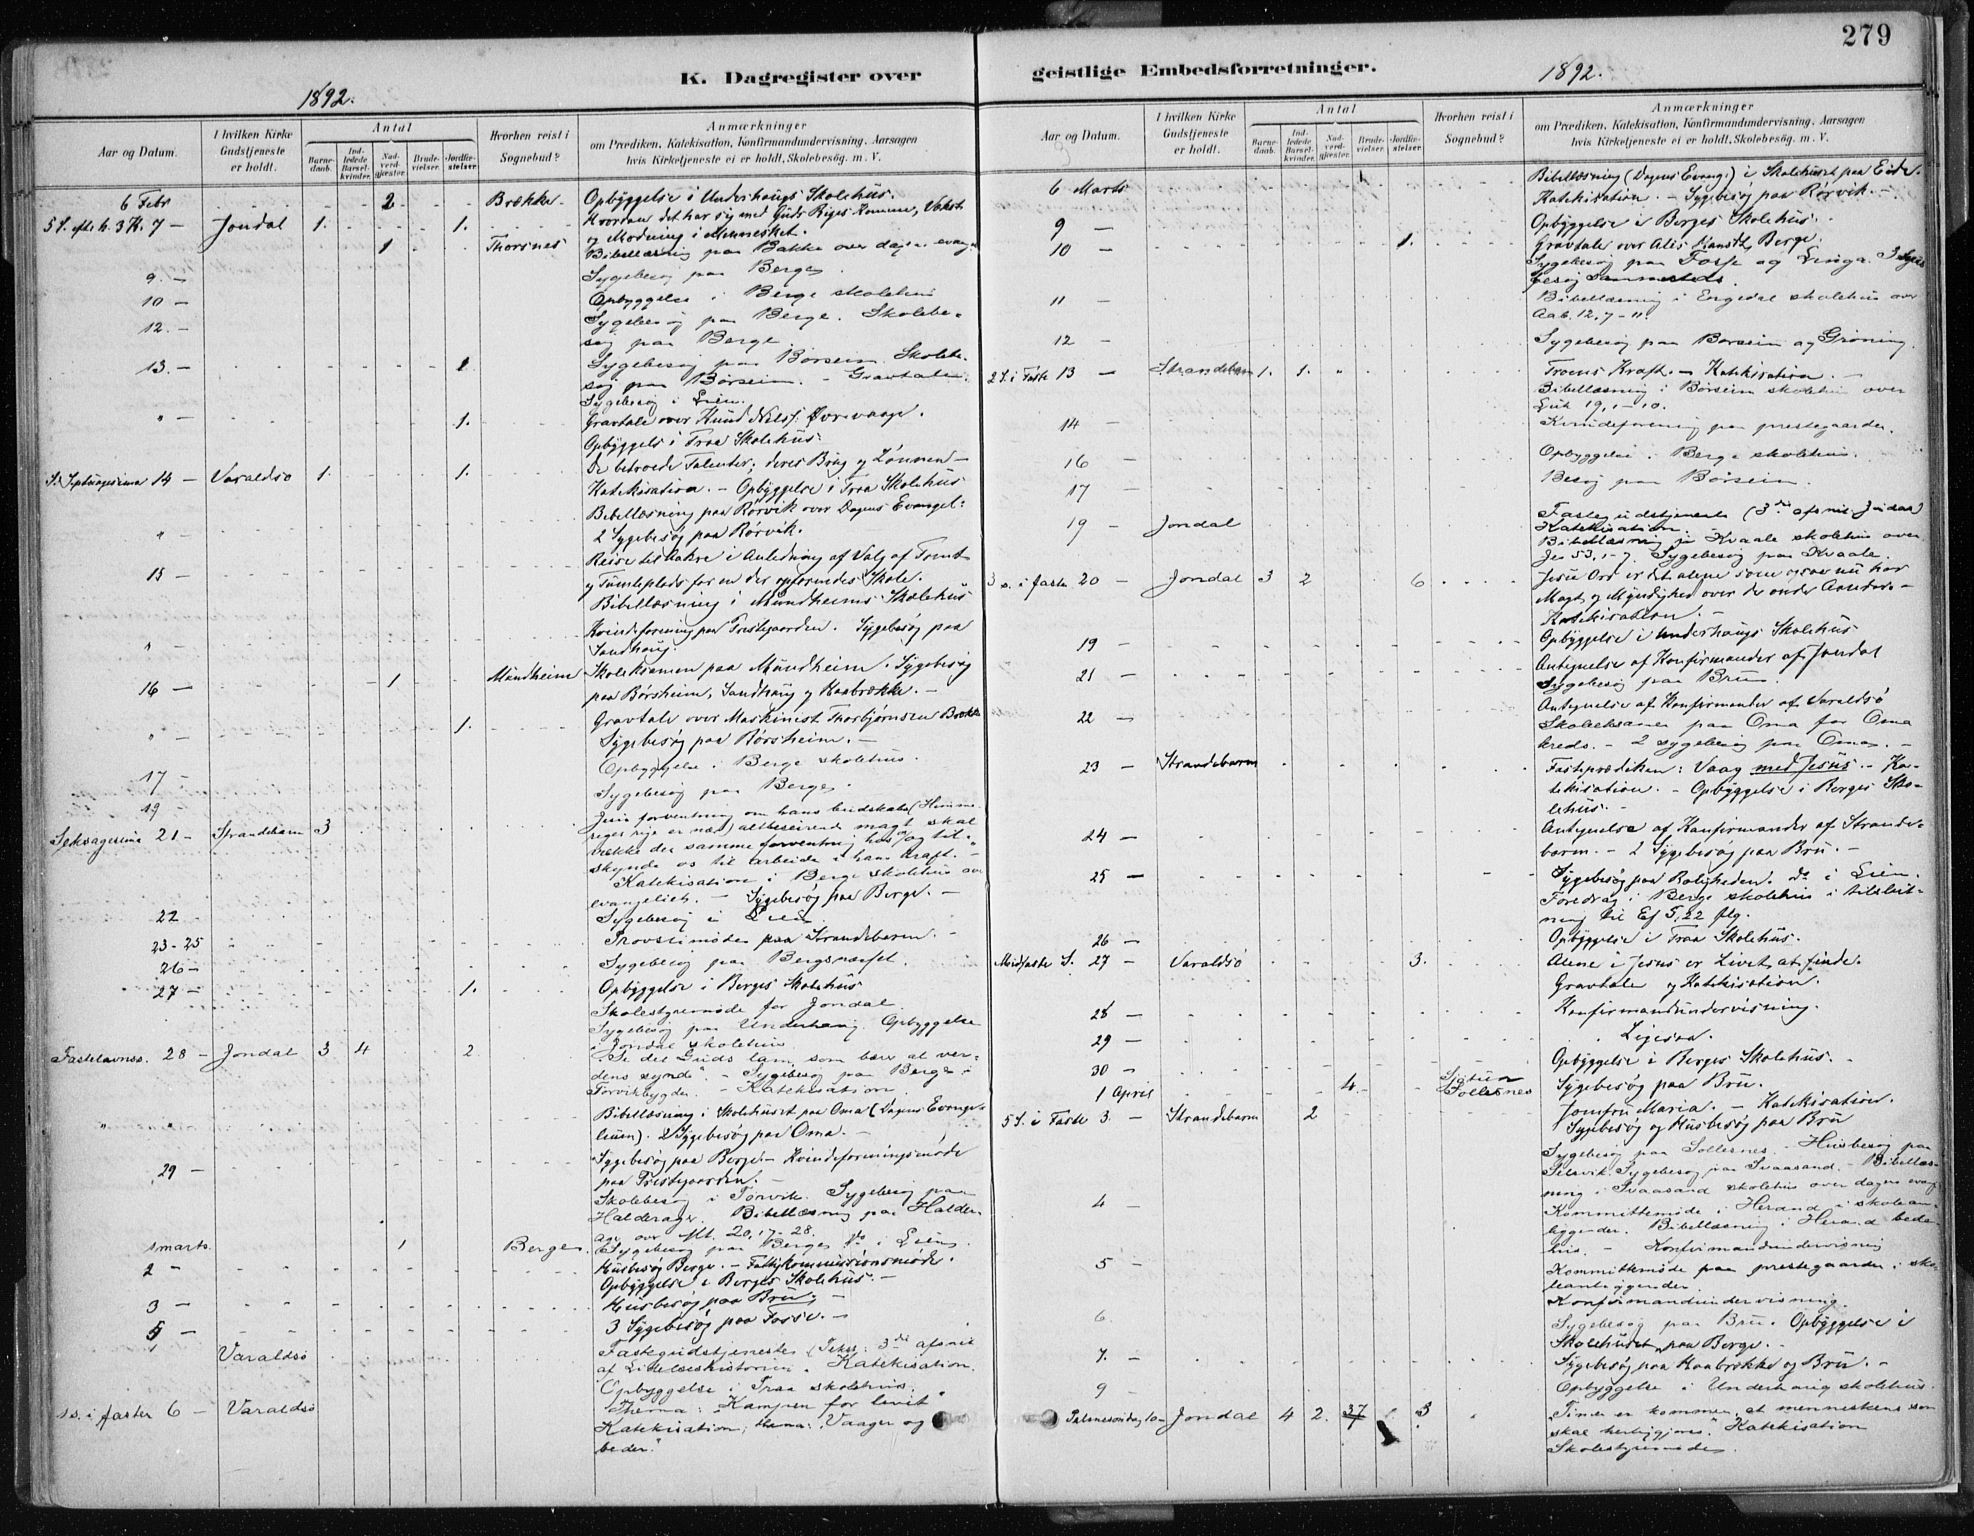 279
K. Dagregister over geistlige Embedsforretninger.
1892.
1892.
Aar og Datum.
I hvilken Kirke Gudstjeneste er holdt.
Antal
Barnedaab.
Indledede Barselkvinder.
Nadverdgjæster.
Brudevielser.
Jordfæstelser.
Hvorhen reist i Sognebud?
Anmærkninger
om Prædiken, Katekisation, Konfirmandundervisning. Aarsagen
hvis Kirketjeneste ei er holdt. Skolebesøg. m. V.
6 Febr 2 Brække Opbyggelse i Underhaugs Skolehus.
5 S. eft. h. 3 K. 7 Jondal 1. 1. Hvordan det har sig med Guds Riges Komme, Vækst
og Modning i Mennesket.
1 Thorsnes Bibellæsning paa Bakke over dagen evang.
9. Sygebesøg paa Berge.
10 Opbyggelse i Berge skolehus
12. Sygebesøg paa Berge. Skolebe-
søg paa Berge
13. 1 Sygebesøg paa Børseim. Skolebe-
søg paa Børseim. - Gravtale.
Sygebesøg i Lien.
" 1. Gravtale over Knud Nelss. Øvrevaage.
Opbyggels i Traa Skolehus.
S. Septuagesima 14 Varaldsø 1. 1. De betroede Talenter; deres Brug og Lønnen
Katekisation. - Opbyggelse i Traa Skolehus
Bibellæsning paa Rørvik over Dagens Evangel.
" 2 Sygebesøg paa Rørvik.
Reise til Aakre i Anledning af Valg af Tomt
15 og Tomteplads for en der opførendes Skole.
Bibellæsning i Mundheims Skolehus
" Kvindeforening paa Prestegaarden. Sygebesøg paa
Sandhaug.
16 1 Mundheim Skoleksamen paa Mundheim. Sygebesøg
paa Børsheim, Sandhaug og Kaabrække.
" 1. Gravtale over Maskinist Thorbjørnsen Brække
Sygebesøg paa Børsheim.
17 Opbyggelse i Berge skolehus.
19 Sygebesøg paa Berge.
Seksagesima 21 Strandebarm 3 Jesu forventning om hans budskabs (Himme-
riges rige er nær) altbeseirende magt skal
vække den samme forventning hos os og til-
skynde os til arbeide i hans kraft. -
Katekisation i Berge skolehus over
evangeliet. - Sygebesøg paa Berge. -
22 Sygebesøg i Lien.
23-25 Provstemøde paa Strandebarm.
26 Sygebesøg paa Bergsnæset.
27 1. Opbyggelse i Berges Skolehus
Skolestyremøde for Jondal
Sygebesøg paa Underhaug Opbyggelse
i Jondal skolehus
Fastelavnss. 28 Jondal 3 4 2 "Se det Guds lam, som bærer al ver-
dens synd". - Sygebesøg paa Berge i
Torvikbygden - Katekisation
" " Bibellæsning i Skolehuset paa Oma (Dagens Evange-
lium). 2 Sygebesøg paa Oma.
29 Sygebesøg paa Berge. - Kvindeforeningsmøde
paa Prestegaarden.
Skolebesøg i Torvik. Sygebesøg paa
Halderager. Bibellæsning paa Halder-
ager over Mt. 20, 17-28.
1 marts 1 Berge. Sygebesøg paa Berge. do i Lien.
2 " Husbesøg Berge. - Fattigkommissionsmøde.
Opbyggelse i Berges Skolehus.
3 Husbesøg paa Bru.
5 3 Sygebesøg paa Fosse.
Varaldsø Fastegudstjeneste (Text: 3de afsnit
af Lidelseshistorien. Katekisation.
Opbyggelse i Traa skolehus.
1 s. i fasten 6 Varaldsø Thema: Kampen for livet
Katekisation; thema: Vaager og
beder."
6 Marts Bibellæsning (Dagens Evang.) i Skolehuset paa Eide.
Katekisation. - Sygebesøg paa Rørvik.
9 Opbyggelse i Berges Skolehus.
10 1. Gravtale over Berge.
Sygebesøg paa Fosse og Linga. 3 Syge-
besøg sammesteds.
11 Bibellæsning i Engedal skolehus over
Aab. 12, 7-11.
12 Sygebesøg paa Børseim og Grøning.
2 S. i Faste 13 Strandebarm 1. 1. " Troens Kraft. - Katekisation. -
Bibellæsning i Børseim skolehus over
Luk 19, 1-10.
14 Kvindeforening paa prestegaarden.
16 Opbyggelse i Berge skolehus.
17 Besøg paa Børseim.
19 Jondal Fastegudstjeneste (3de afsnit Judas)
Katekisation
Bibellæsning i Kvaale skolehus over
Jes 53, 1-7. Sygebesøg paa Kvaale.
3 s. i faste 20 Jondal 3 2 6 Jesu Ord er det alene som ogsaa nu har
Magt og Myndighed over de onde Aander. -
Katekisation. -
19 Opbyggelse i Underhaugs Skolehus
21 Antegnelse af Konfirmander af Jondal
Sygebesøg paa Bru.
22 Antegnelse af Konfirmander af Varaldsø
Skoleksamen paa Oma for Oma
kreds. - 2 sygebesøg paa Oma. -
23 Strandebarm Fasteprædiken: Vaag med Jesus. - Ka-
tekisation. - Opbyggelse i Berges Sko-
lehus. -
24 Antegnelse af Konfirmander af Strande-
barm. - 2 Sygebesøg paa Bru. -
25 Sygebesøg paa Roligheden. do i Lien.
Foredrag i Berge skolehus i tilslut-
ning til Ef 5, 22 flg.
26 Opbyggelse i Traa Skolehus.
Midfaste S. 27 Varaldsø 3. Alene i Jesus er Livet at finde.
Gravtale og Katekisation.
28 Konfirmandundervisning.
29 Ligesaa.
30 Opbyggelse i Berges Skolehus.
1 April 4 Sollesnes Sygebesøg paa Bru.
5 S. i Faste 3. Strandebarm 2 Jomfru Maria. - Katekisation.
Sygebesøg og Husbesøg paa Bru
Sygebesøg paa Sollesnes. - Husbesøg paa
Selsvik. Sygebesøg paa Svaasand. - Bibellæs-
ning i Svaasand skolehus over dagens evang.
4 Kommittemøde i Herand i skolean-
liggender. Bibellæsning i Herand bede-
hus. - Konfirmandundervisning
5 Kommittemøde paa prestegaarden i sko-
leanliggender.
Konfirmandundervisning.
6 Sygebesøg paa Bru. Opbyggelse i
Skolehuset paa Berge.
7. Sygebesøg paa Kaabrække og Bru. -
9 Opbyggelse i Underhaug skolehus.
Palmesøndag 10 Jondal 4 2. 37 3 "Timen er kommen, at menneskens søn
skal herliggjøres". Katekisation
Skolestyremøde.